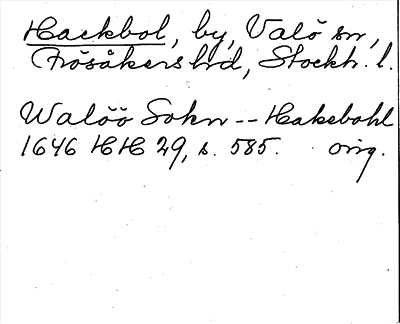 Hackbol, by, Valö sn,
Frösåkers hd, Stockh. l.
Walöö Sokn -- Hakebohl
1646 HH 29, s. 585. orig.